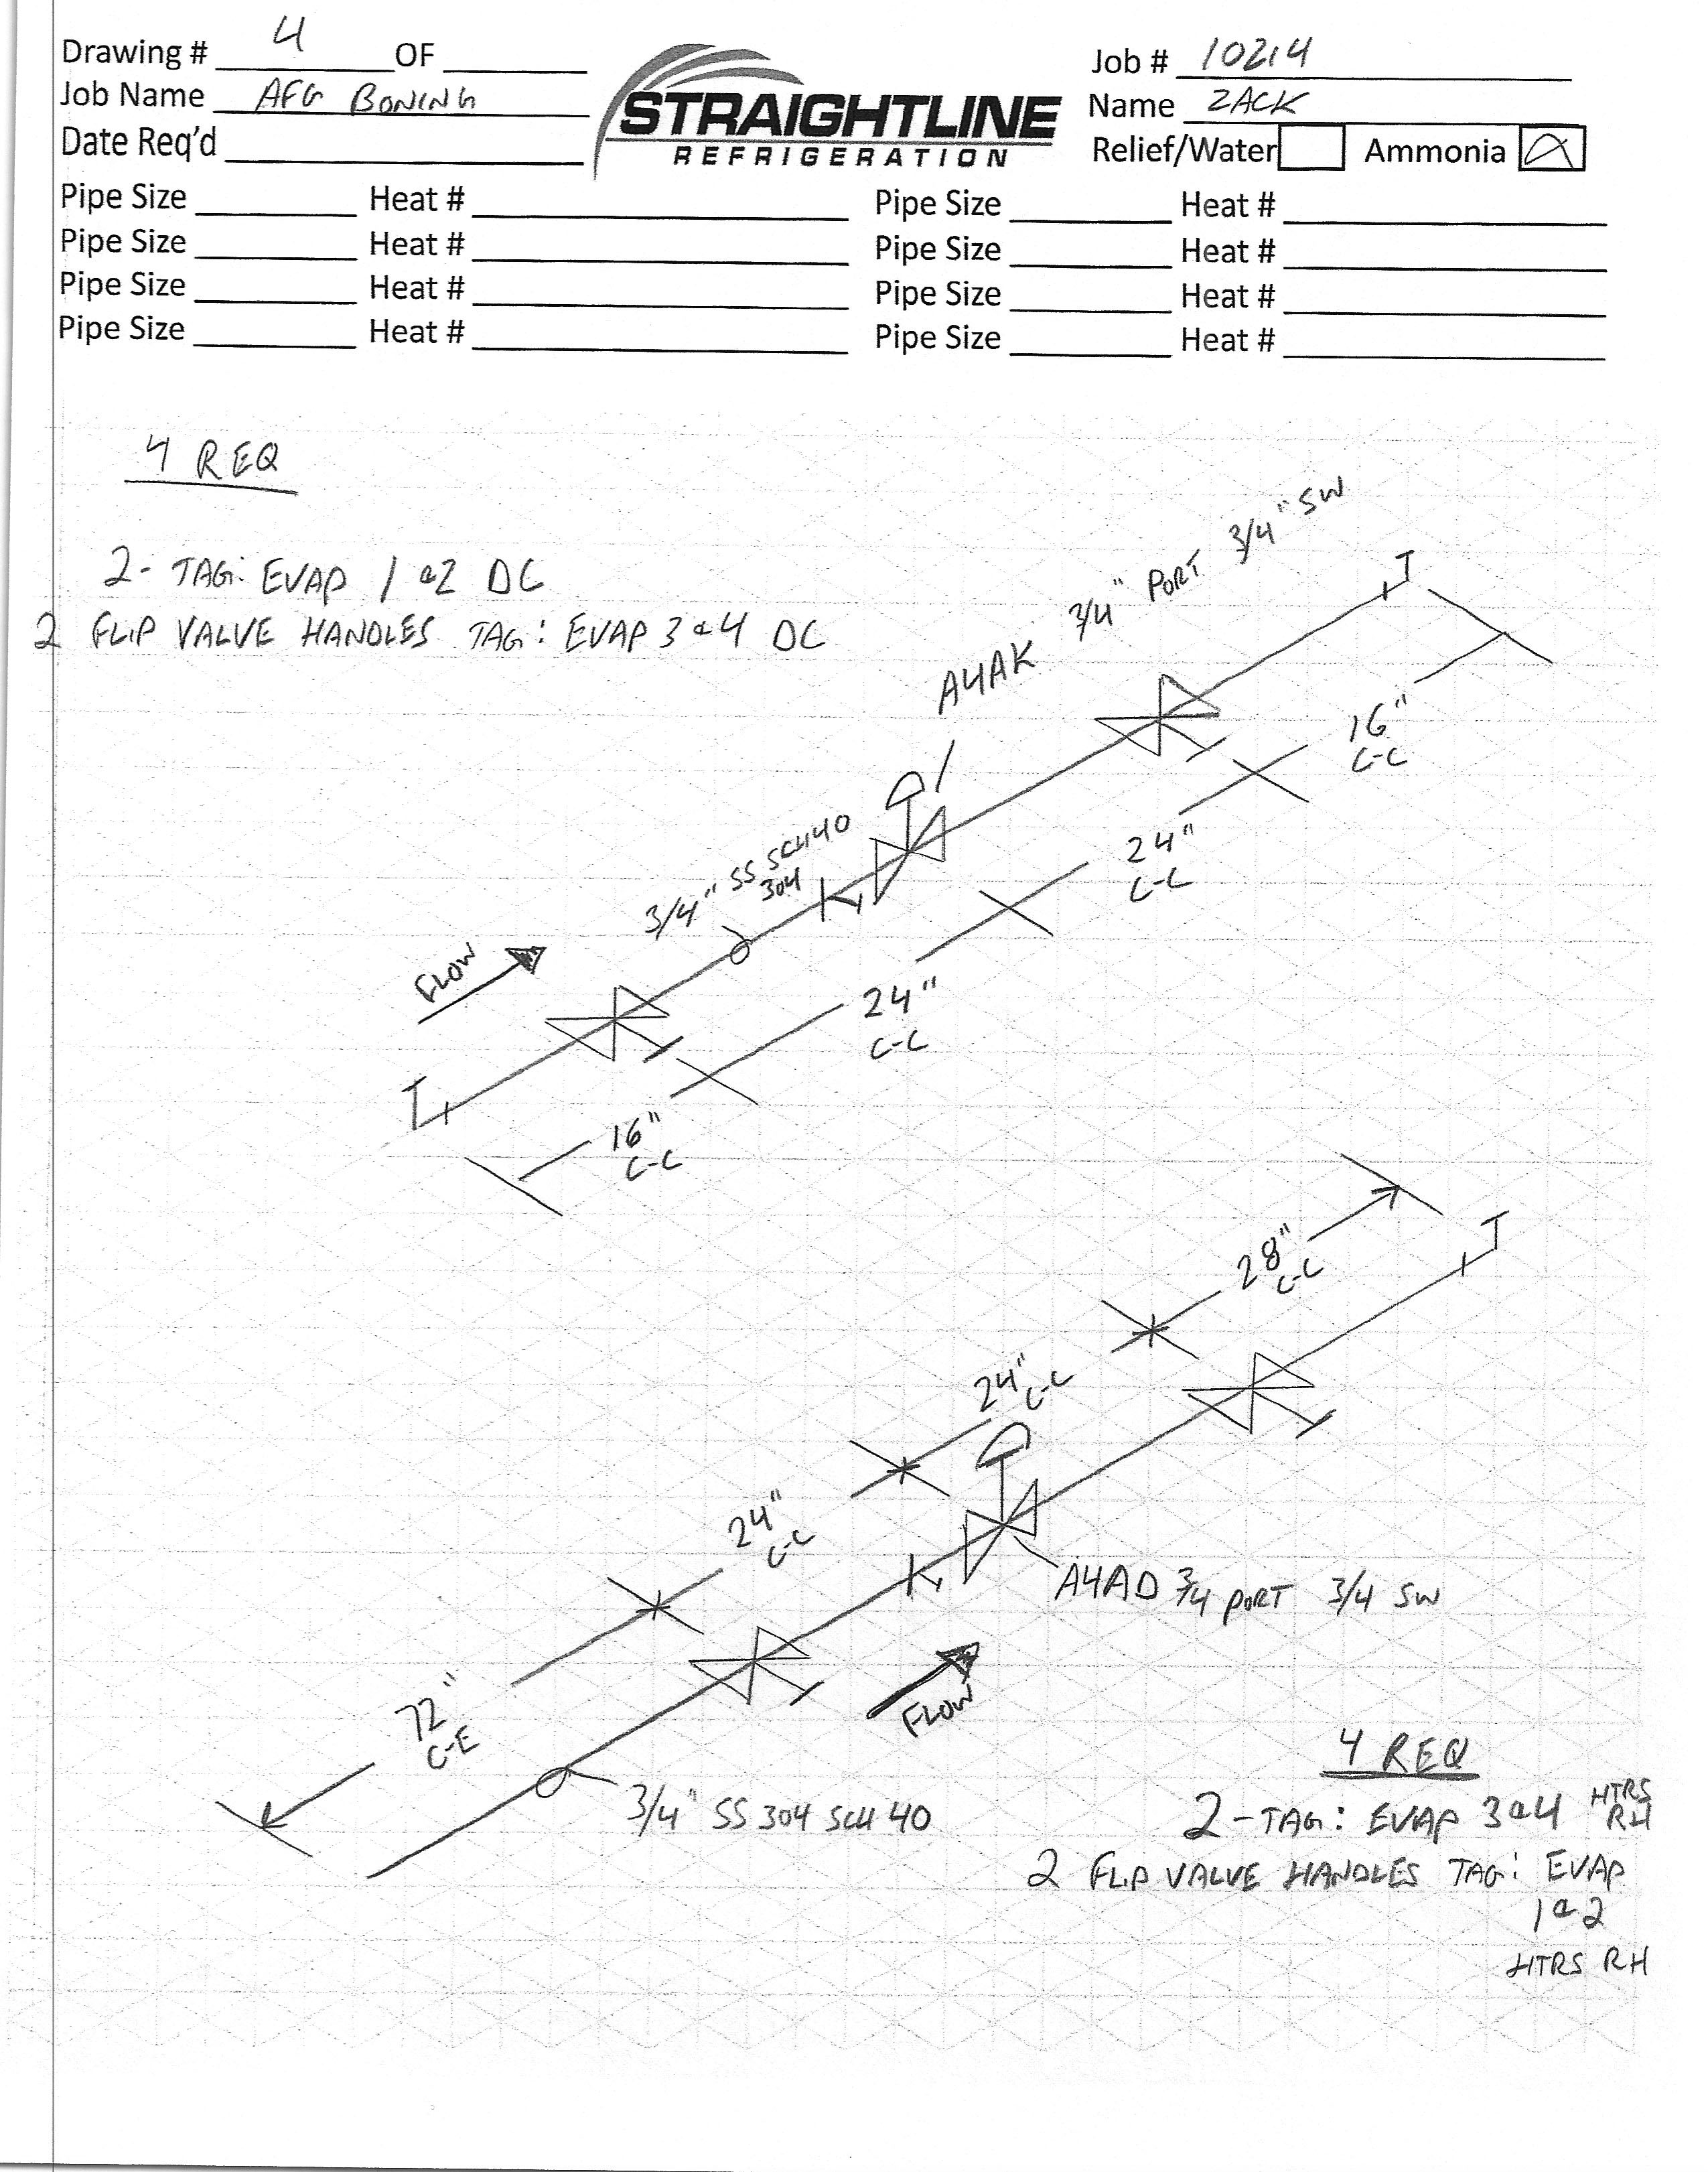 Drawing # 4 OF
Job Name AFG BONING
Date Req'd
STRAIGHTLINE
REFRIGERATION
Job # 10214
Name ZACK
Relief/Water Ammonia
Pipe Size Heat # Pipe Size Heat #
Pipe Size Heat # Pipe Size Heat #
Pipe Size Heat # Pipe Size Heat #
Pipe Size Heat # Pipe Size Heat #
4 REQ
2- TAG: EVAP 1 & 2 DC
2 FLIP VALVE HANDLES TAG: EVAP 3 & 4 DC
A4AK 3/4" PORT 3/4" SW
16"
C-C
3/4" SS SCH40
304
24"
C-C
FLOW
24"
C-C
16"
C-C
28"
C-C
24"
C-C
24"
C-C
A4AD 3/4 PORT 3/4 SW
FLOW
72"
C-E
3/4" SS 304 SCH 40
4 REQ
2-TAG: EVAP 3 & 4 HTRS
RH
2 FLIP VALVE HANDLES TAG: EVAP
1 & 2
HTRS RH